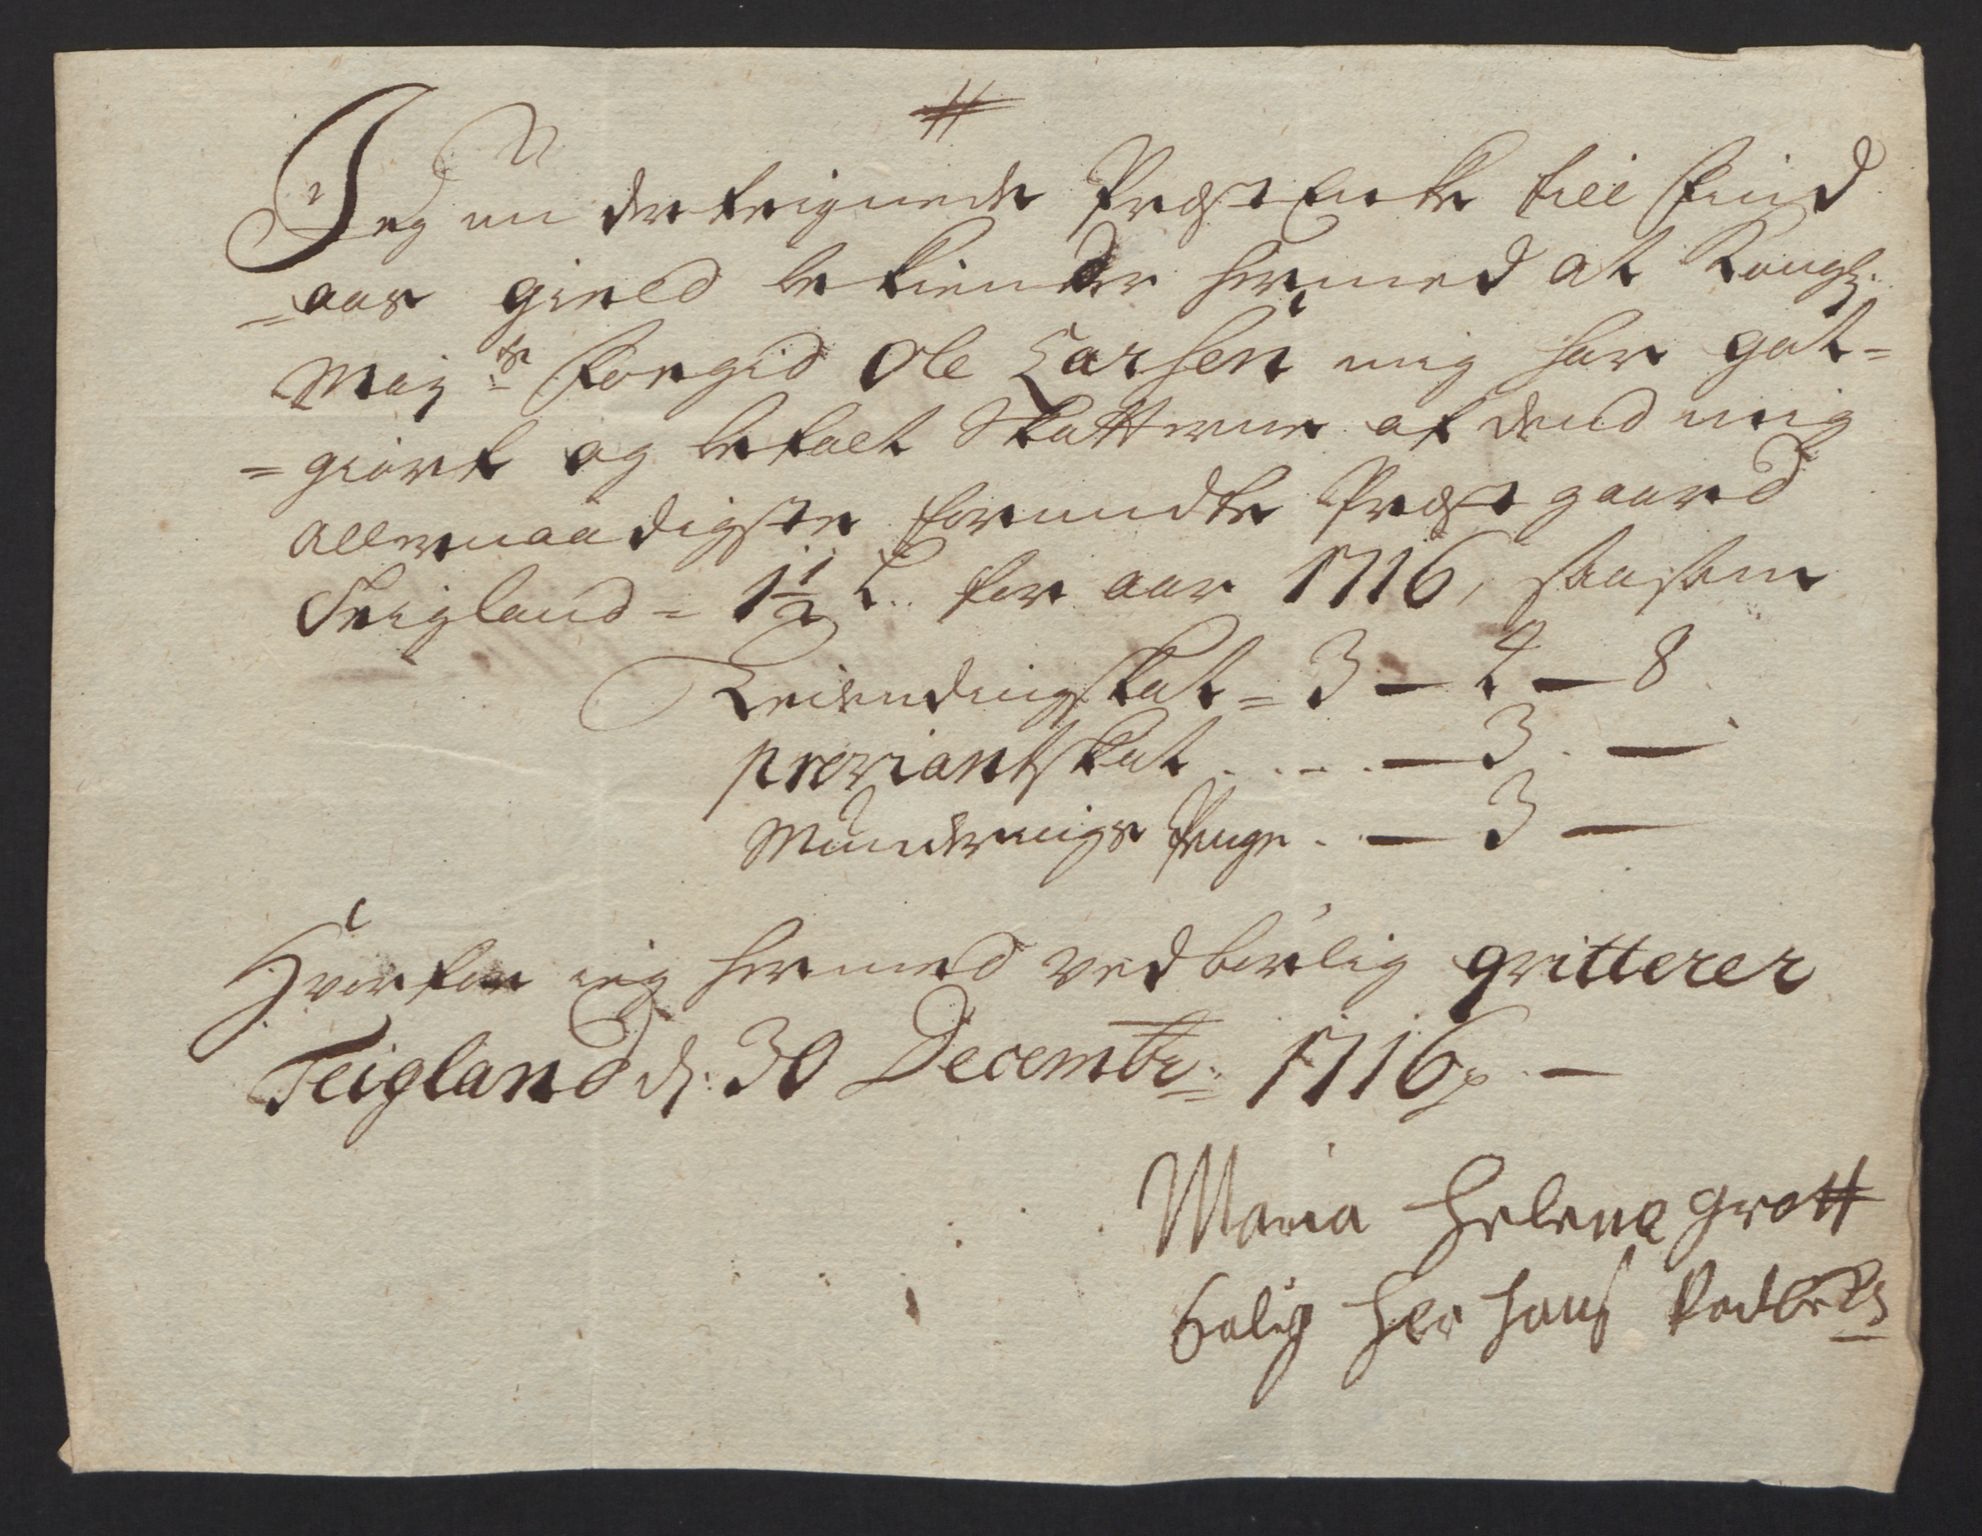 Jeg underteignede Præst Encke till Find
=aas gield bekiender hermed at Kongl:
May:ts Foegid Ole Larsen mig har got=
=giort og betalt Skatterne af dend mig
Allernaadigste forundte Præste gaard
Teigland = 1½ L. for aar 1716, saasom
Leidendingskat = 3 — 4 — 8
proviantskat . . . . — 3 . —
Munderings Penge . — 3 —
Hvorfor ieg hermed vedbørlig qvitterer
Teigland d: 30 Decembr: 1716 —
Maria Helena Grott
Salig Her Hans Rodbertz